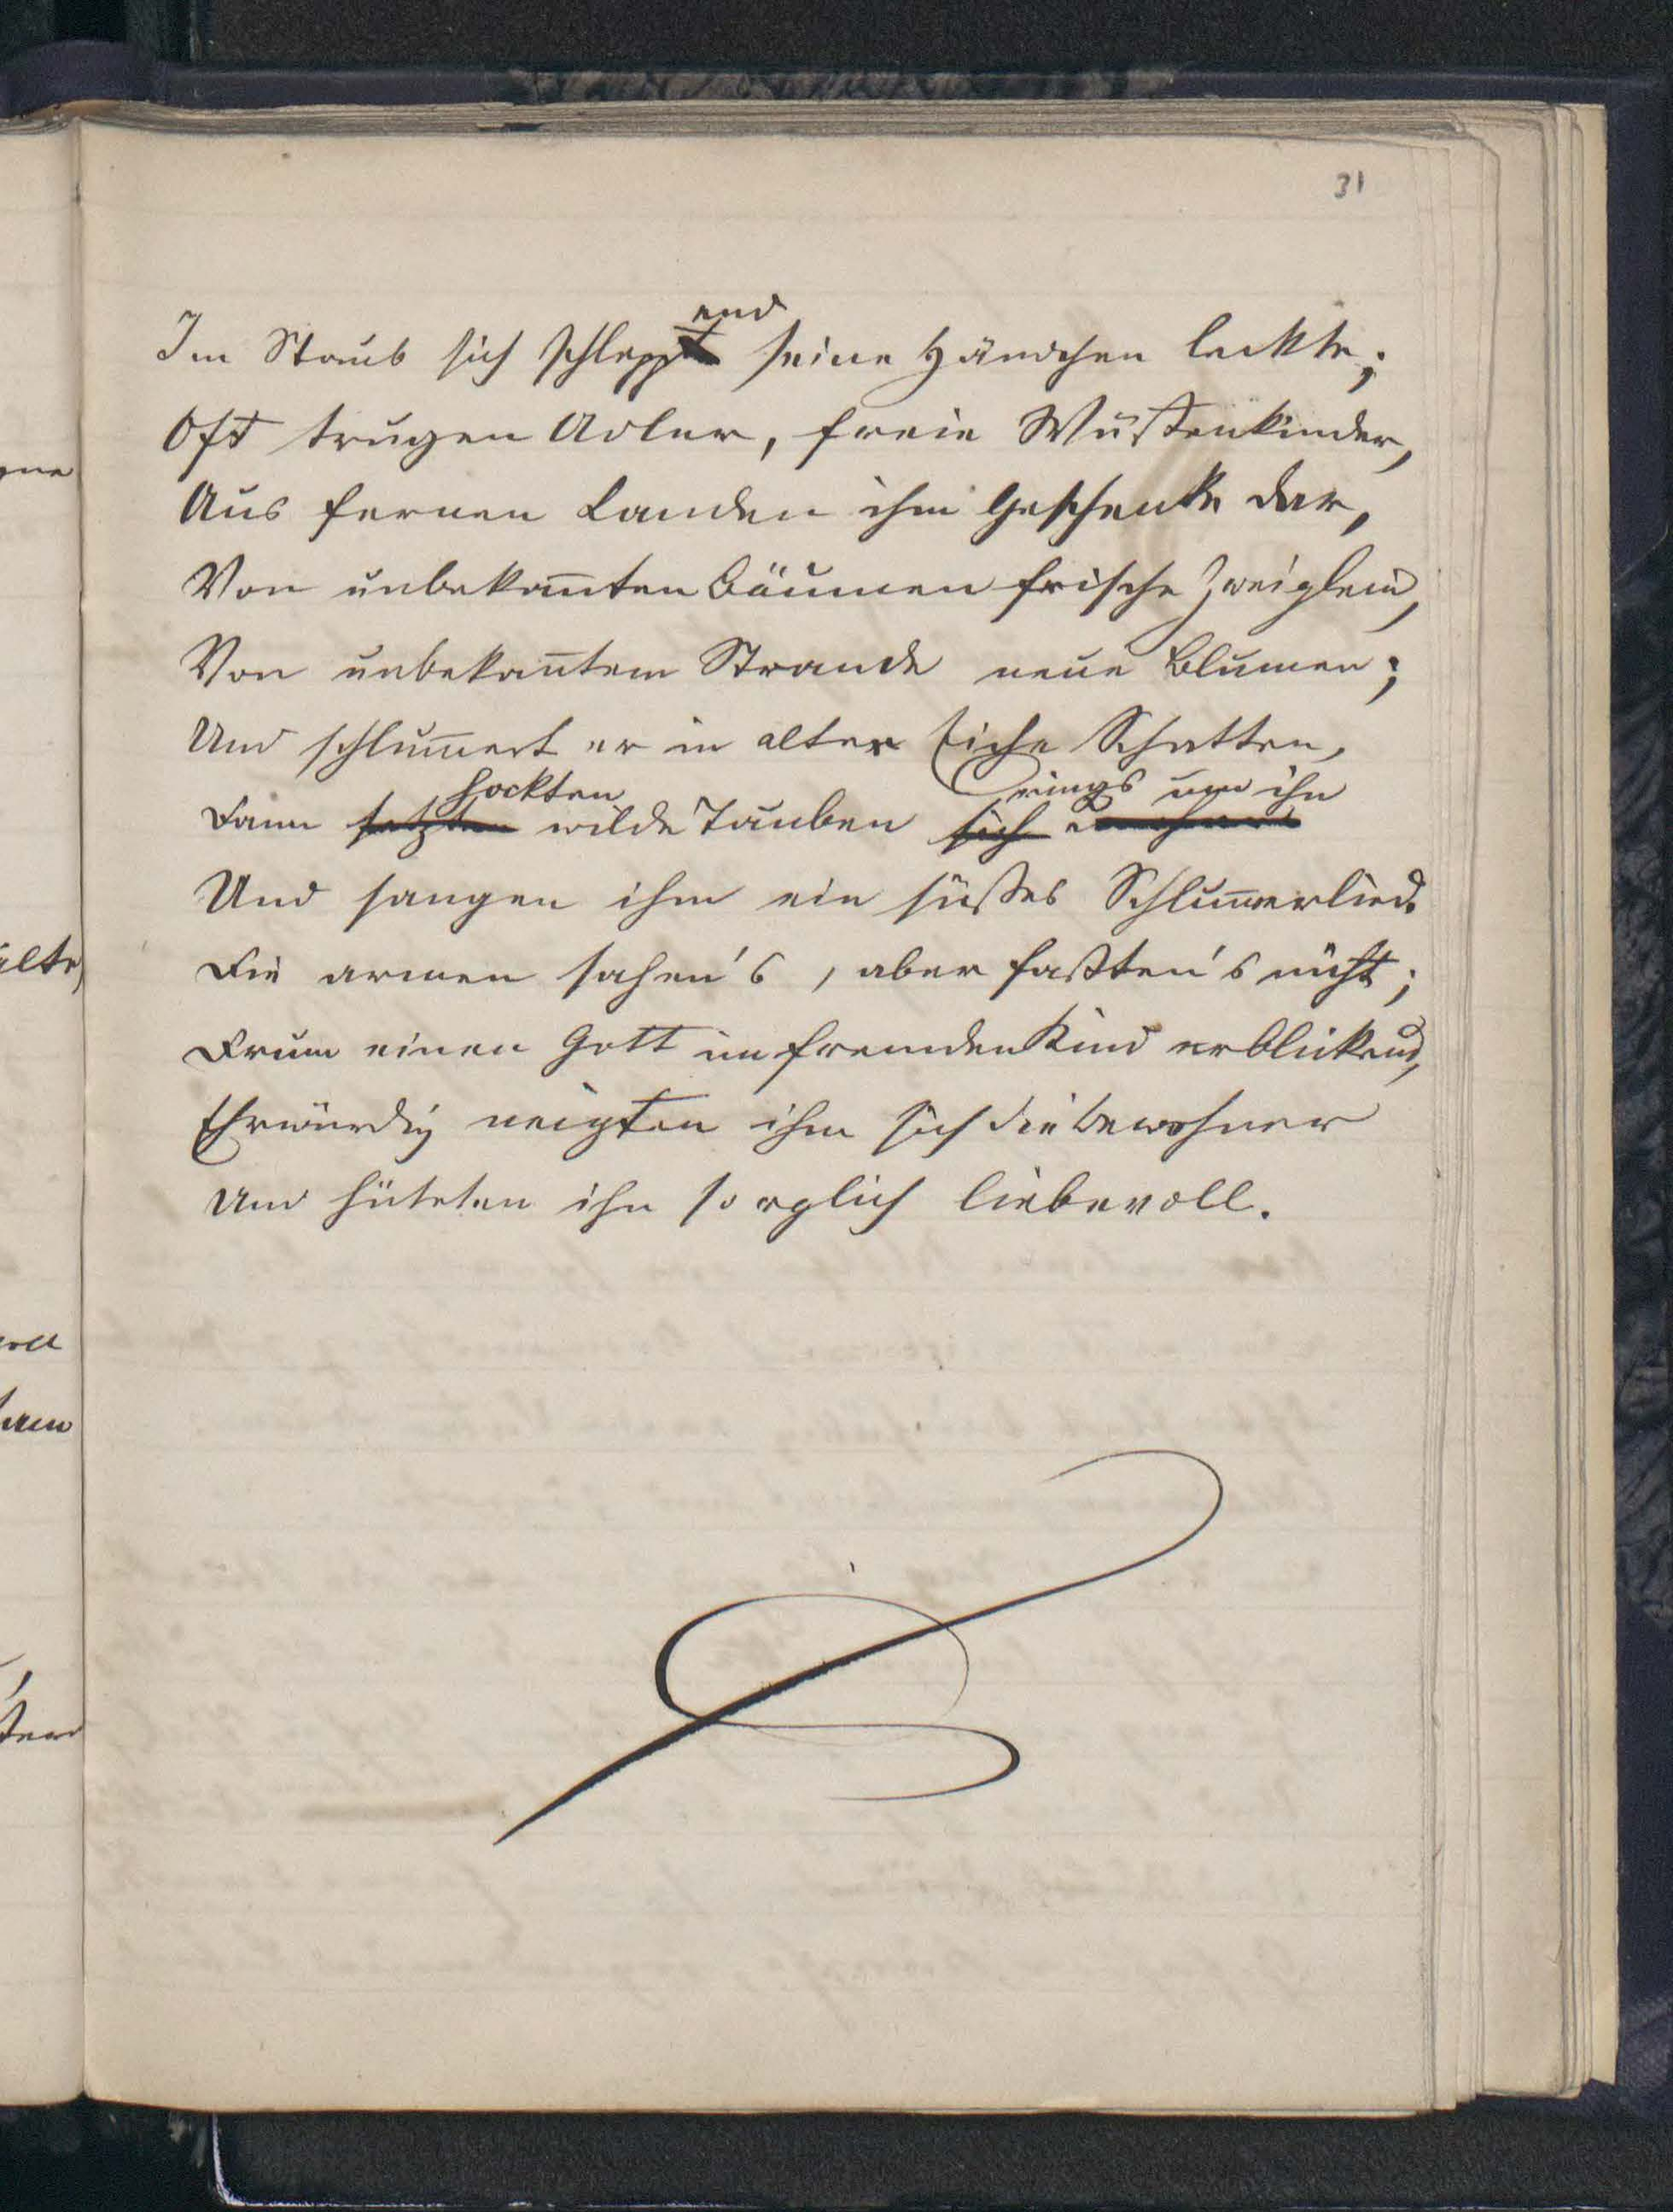 31
Im Staub sich schleppend seine Händchen leckte;
Oft trugen Adler, freie Wüstenkinder,
Aus fernen Landen ihm Geschenke dar,
Von unbekan̅ten Bäumen frische Zweiglein,
Von unbekan̅tem Strande neue Blumen;
Und schlum̅ert er in alter Eiche Schatten,
hockten rings um ihn
Dann setzten wilde Tauben sich
Und sangen ihm ein süßes Schlum̅erlied.
Die armen sahen's, aber faßten's nicht;
Drum einen Gott im fremden Kind erblickend,
Ehrwürdig neigten ihm sich die Bewohner
Und hüteten ihn sorglich liebevoll.